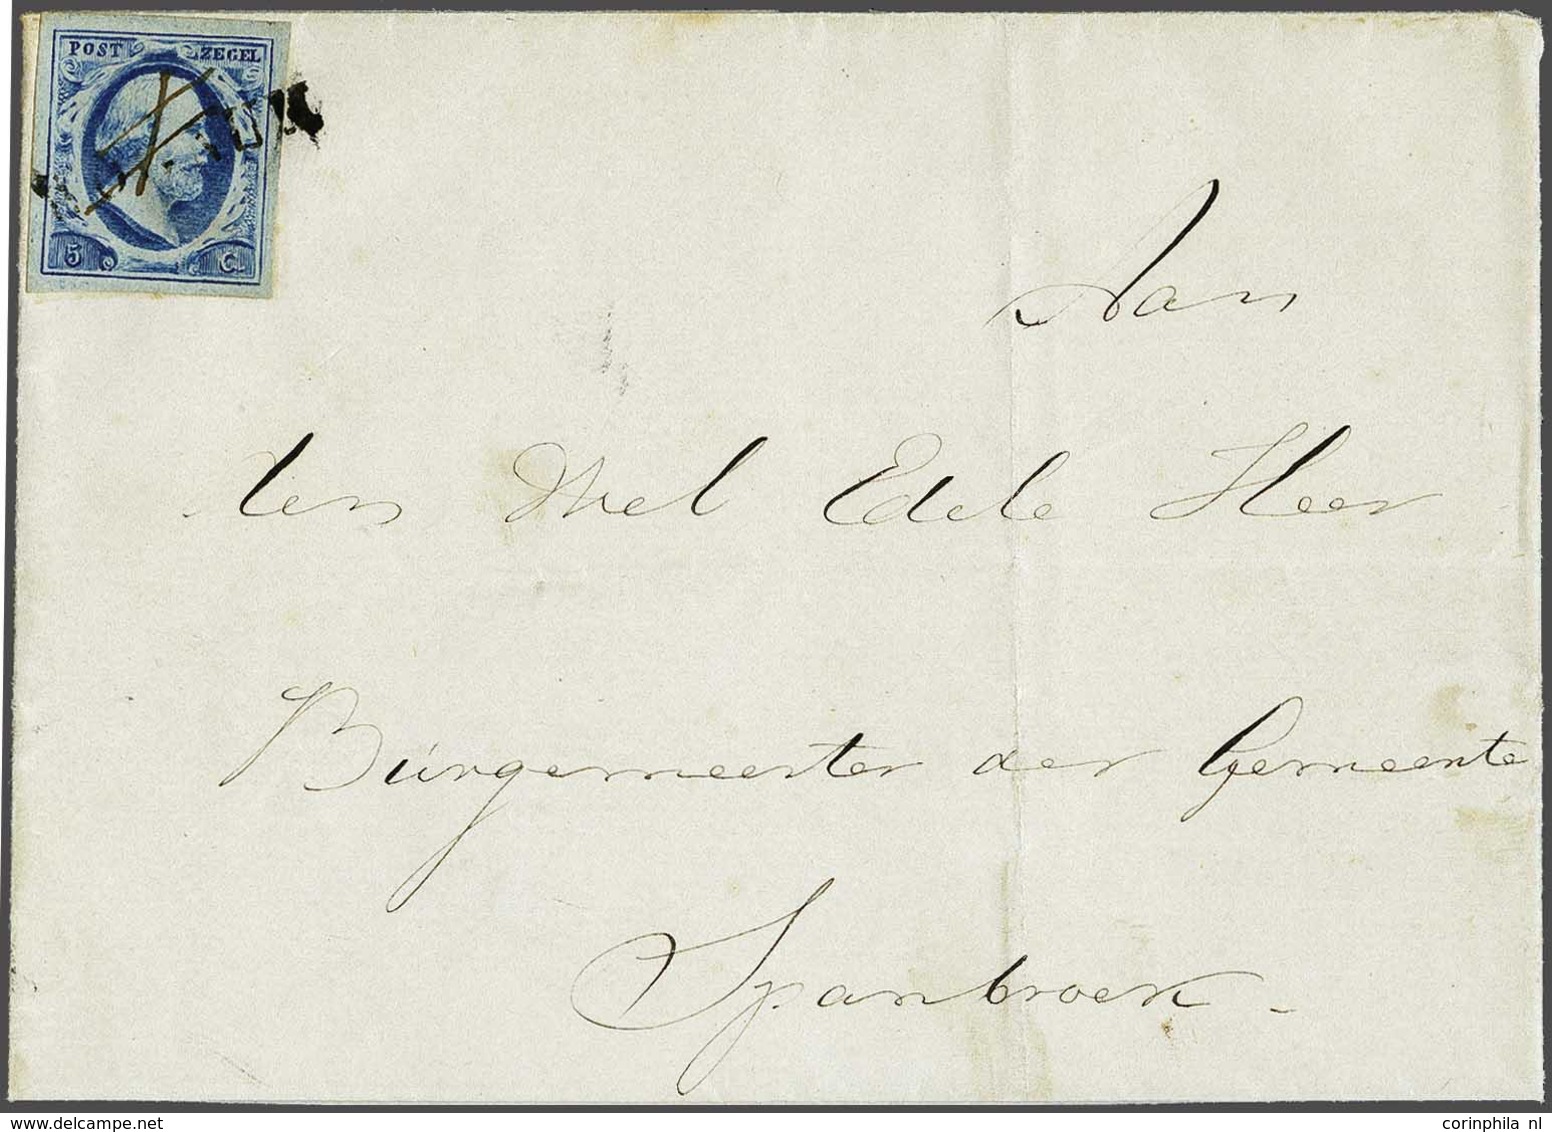 POST ZEGEL
5 C
Aan
den Wel Edele Heer
Búrgemeester der Gemeente
Spanbroek
corinphila nl